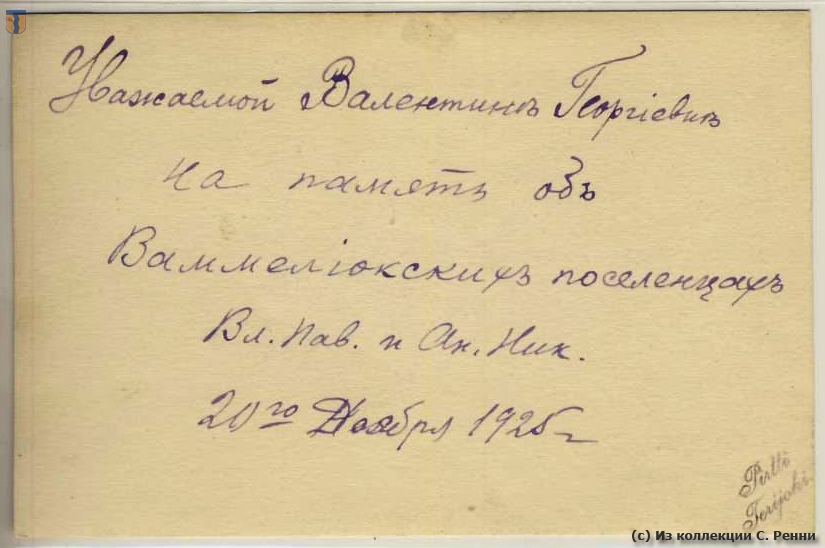 Уважаемой Валентинѣ Георгіевнѣ
на память объ
Ваммельіокскихъ поселенцахъ
Вл. Пав. и Ан. Ник.
20го Ноября 1925 г
Pirtti
Terijoki
(c) Из коллекции С. Ренни